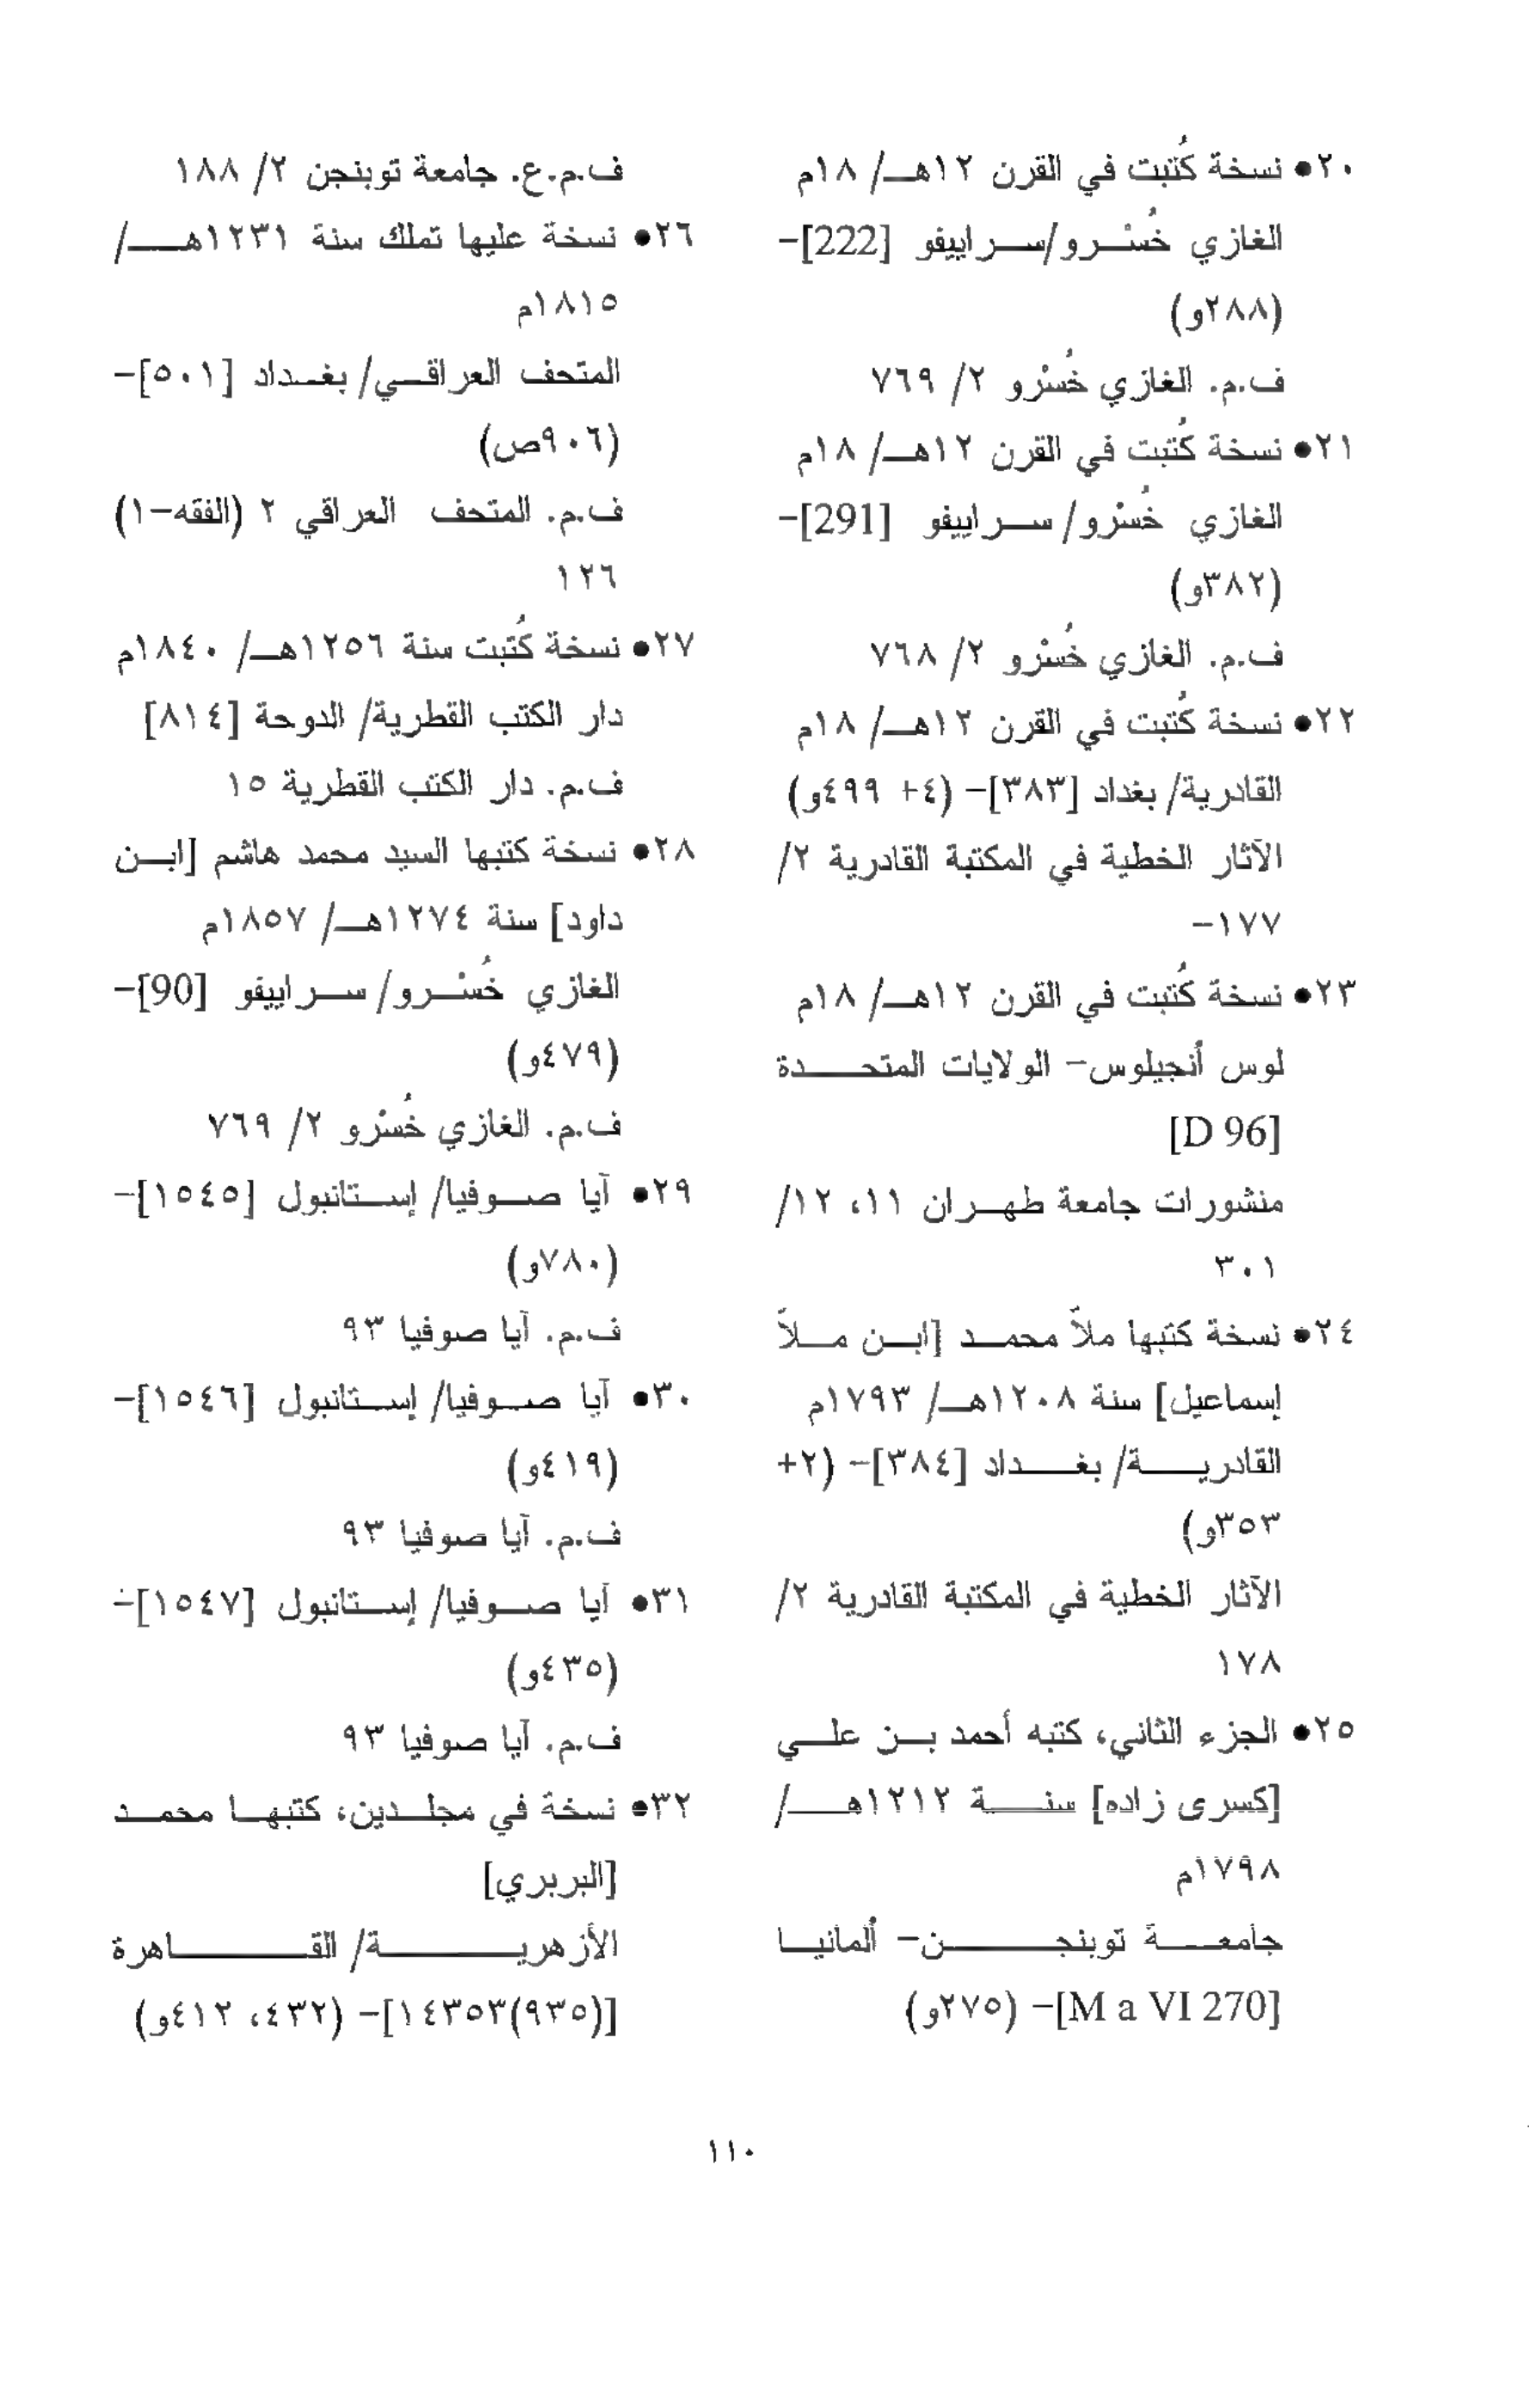 ٢٠• نسخة كُتبت في القرن ١٢هـ/ ١٨م
الغازي خُسْرو/سراييفو [222]-
(٢٨٨و)
ف.م. الغازي خُسْرو ٢/ ٧٦٩
٢١• نسخة كُتبت في القرن ١٢هـ/ ١٨م
الغازي خُسْرو/ سراييفو [291]-
(٣٨٢و)
ف.م. الغازي خُسْرو ٢/ ٧٦٨
٢٢• نسخة كُتبت في القرن ١٢هـ/ ١٨م
القادرية/ بغداد [٣٨٣]- (٤+ ٤٩٩و)
الآثار الخطية في المكتبة القادرية ٢/
١٧٧-
٢٣• نسخة كُتبت في القرن ١٢هـ/ ١٨م
لوس أنجيلوس- الولايات المتحدة
[D 96]
منشورات جامعة طهران ١١، ١٢/
٣٠١
٢٤• نسخة كتبها ملاّ محمد [ابن ملاّ
إسماعيل] سنة ١٢٠٨هـ/ ١٧٩٣م
القادرية/ بغداد [٣٨٤]- (٢+
٣٥٣و)
الآثار الخطية في المكتبة القادرية ٢/
١٧٨
٢٥• الجزء الثاني، كتبه أحمد بن علي
[كسرى زاده] سنة ١٢١٢هـ/
١٧٩٨م
جامعة توبنجن- ألمانيا
[M a VI 270]- (٢٧٥و)
ف.م.ع. جامعة توبنجن ٢/ ١٨٨
٢٦• نسخة عليها تملك سنة ١٢٣١هـ/
١٨١٥م
المتحف العراقي/ بغداد [٥٠١]-
(٩٠٦ص)
ف.م. المتحف العراقي ٢ (الفقه-١)
١٢٦
٢٧• نسخة كُتبت سنة ١٢٥٦هـ/ ١٨٤٠م
دار الكتب القطرية/ الدوحة [٨١٤]
ف.م. دار الكتب القطرية ١٥
٢٨• نسخة كتبها السيد محمد هاشم [ابن
داود] سنة ١٢٧٤هـ/ ١٨٥٧م
الغازي خُسْرو/ سراييفو [90]-
(٤٧٩و)
ف.م. الغازي خُسْرو ٢/ ٧٦٩
٢٩• آيا صوفيا/ إستانبول [١٥٤٥]-
(٧٨٠و)
ف.م. آيا صوفيا ٩٣
٣٠• آيا صوفيا/ إستانبول [١٥٤٦]-
(٤١٩و)
ف.م. آيا صوفيا ٩٣
٣١• آيا صوفيا/ إستانبول [١٥٤٧]-
(٤٣٥و)
ف.م. آيا صوفيا ٩٣
٣٢• نسخة في مجلدين، كتبها محمد
[البربري]
الأزهرية/ القاهرة
[(٩٣٥)١٤٣٥٣]- (٤٣٢، ٤١٢و)
١١٠